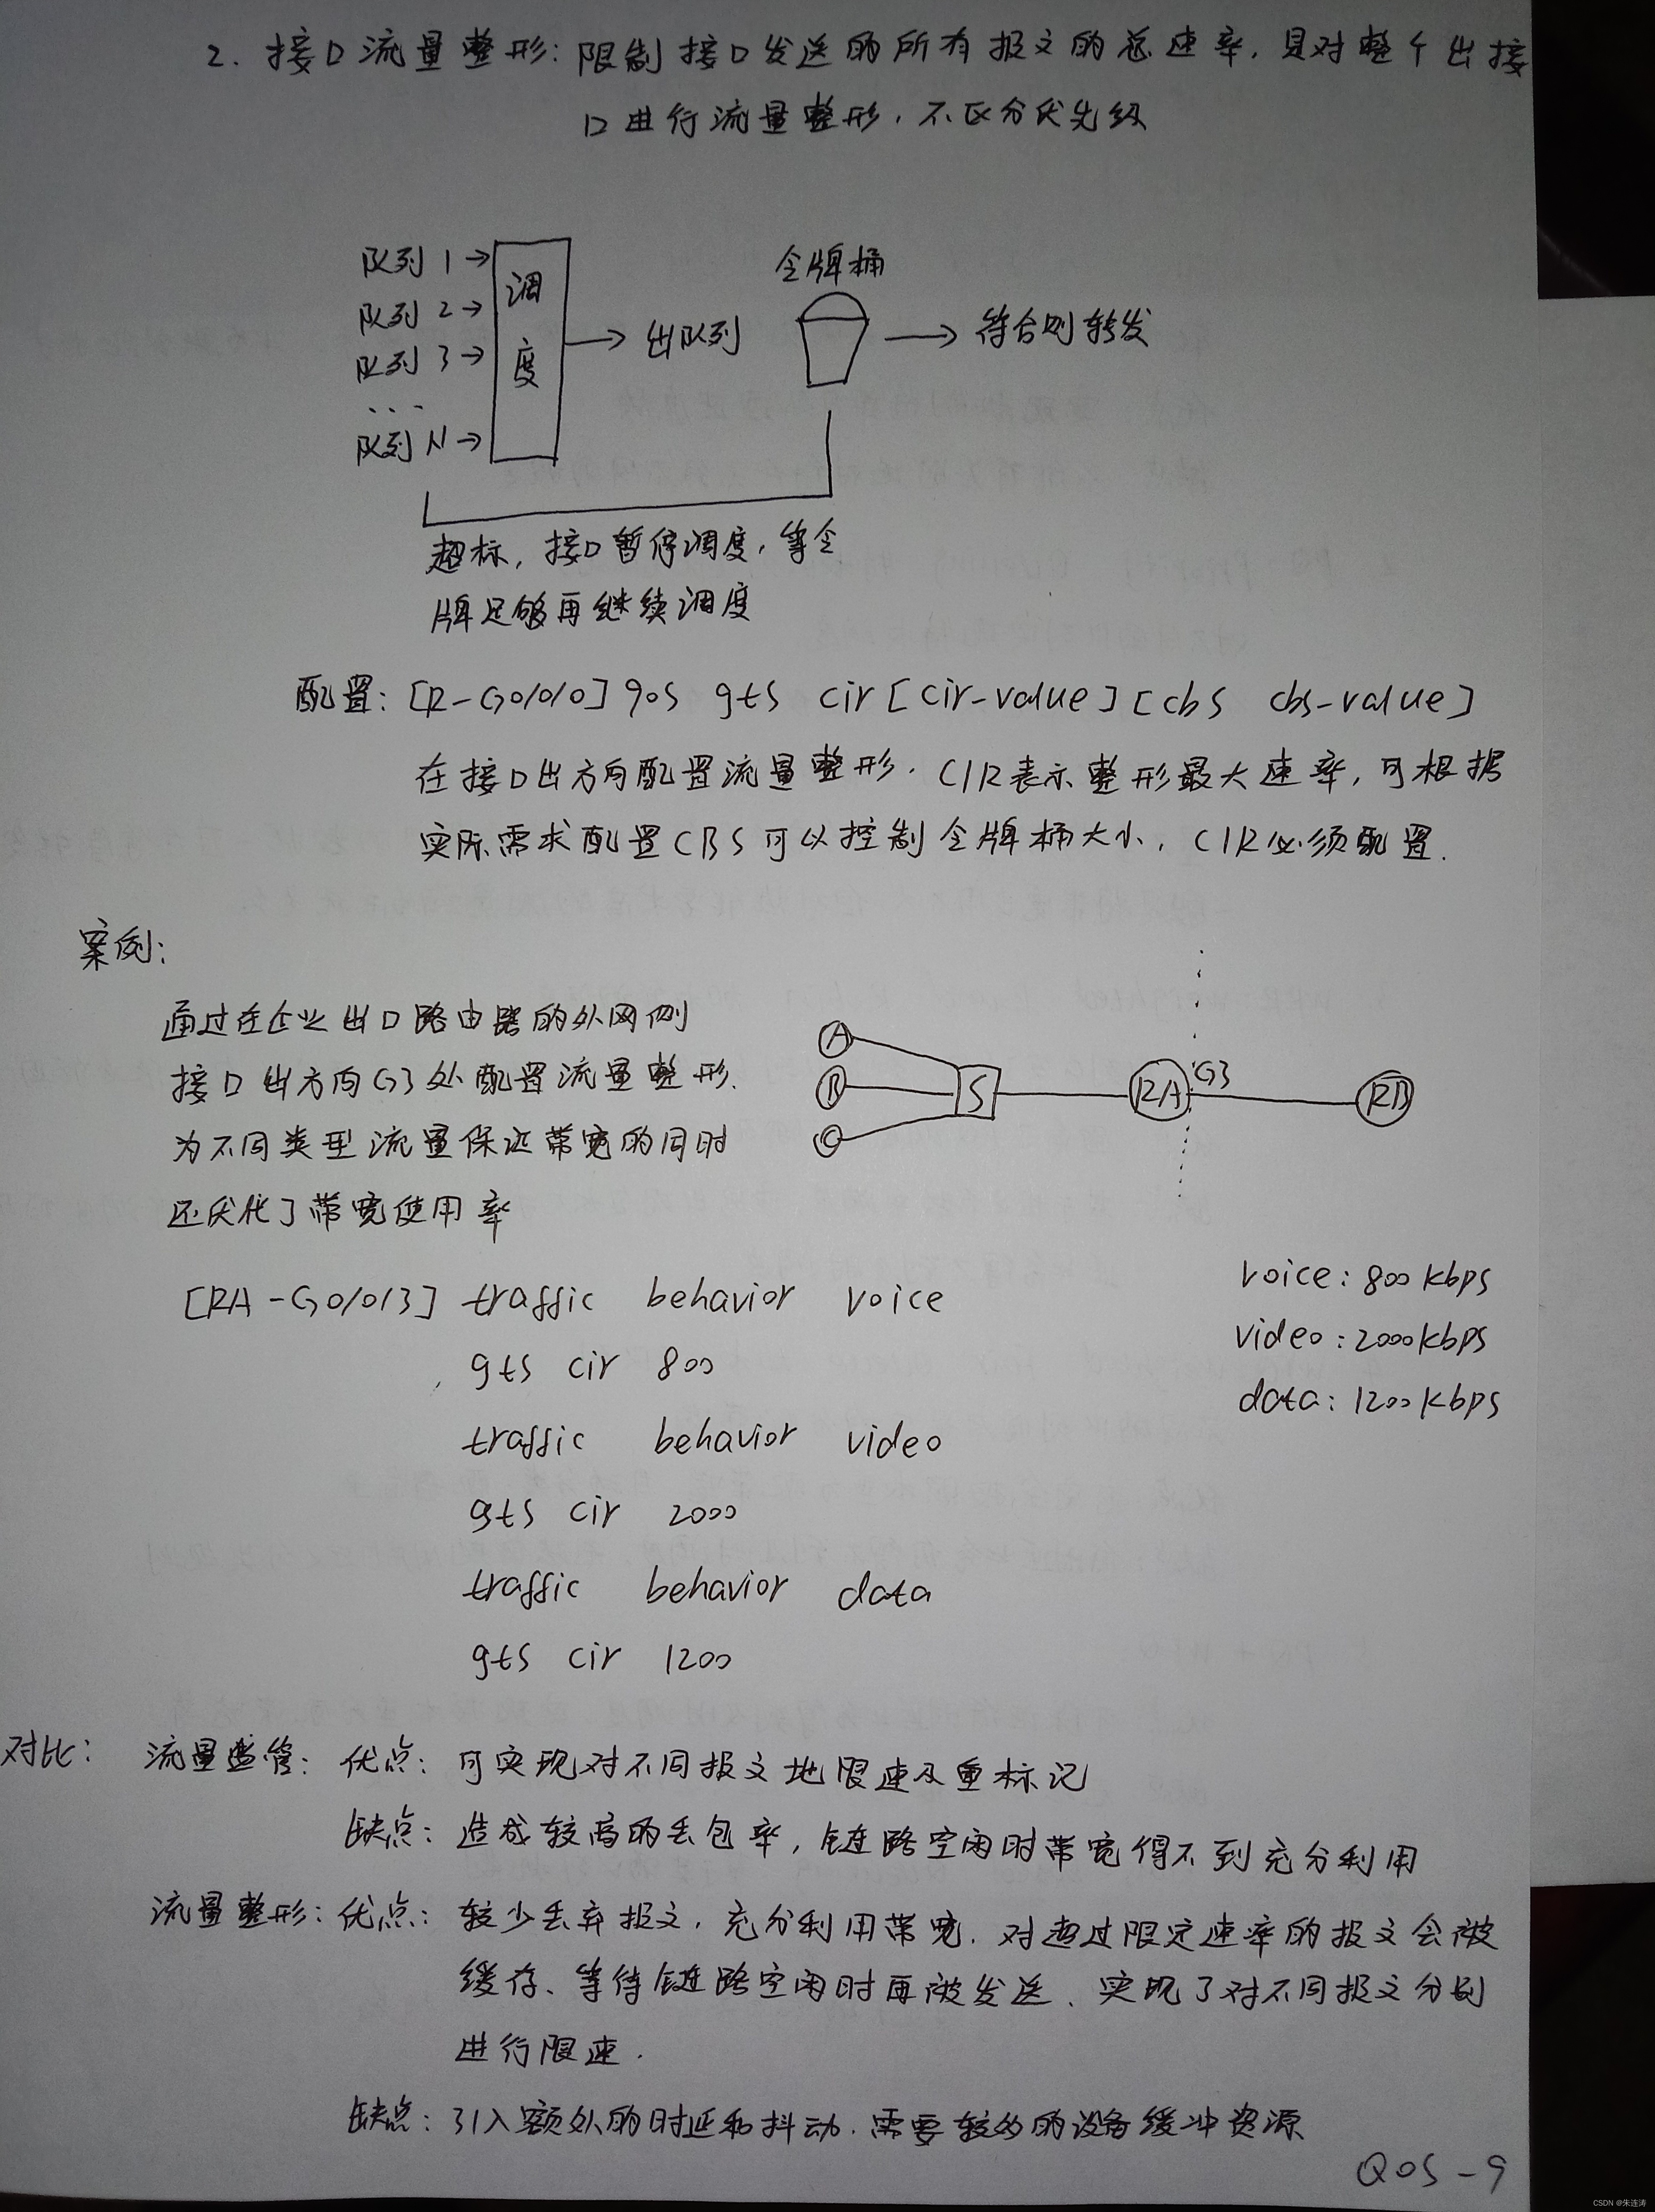 2. 接口流量整形: 限制接口发送的所有报文的总速率, 且对整个出接
口进行流量整形, 不区分优先级
队列 1 →
队列 2 →
队列 3 →
...
队列 N →
调
度
→ 出队列
令牌桶
→ 符合则转发
超标, 接口暂停调度, 等令
牌足够再继续调度
配置: [R-G0/0/0] qos gts cir [cir-value] [cbs cbs-value]
在接口出方向配置流量整形. CIR表示整形最大速率, 可根据
实际需求配置CBS可以控制令牌桶大小, CIR必须配置.
案例:
通过在企业出口路由器的外网侧
接口出方向G3处配置流量整形.
为不同类型流量保证带宽的同时
还优化了带宽使用率
A
B
C
S
RA
G3
RB
[RA-G0/0/3] traffic behavior voice
gts cir 800
traffic behavior video
gts cir 2000
traffic behavior data
gts cir 1200
voice: 800kbps
video: 2000kbps
data: 1200kbps
对比: 流量监管: 优点: 可实现对不同报文地限速及重标记
缺点: 造成较高的丢包率, 链路空闲时带宽得不到充分利用
流量整形: 优点: 较少丢弃报文, 充分利用带宽. 对超过限定速率的报文会被
缓存、等待链路空闲时再被发送、实现了对不同报文分别
进行限速.
缺点: 引入额外的时延和抖动. 需要较多的设备缓冲资源
QOS-9
CSDN @朱连涛